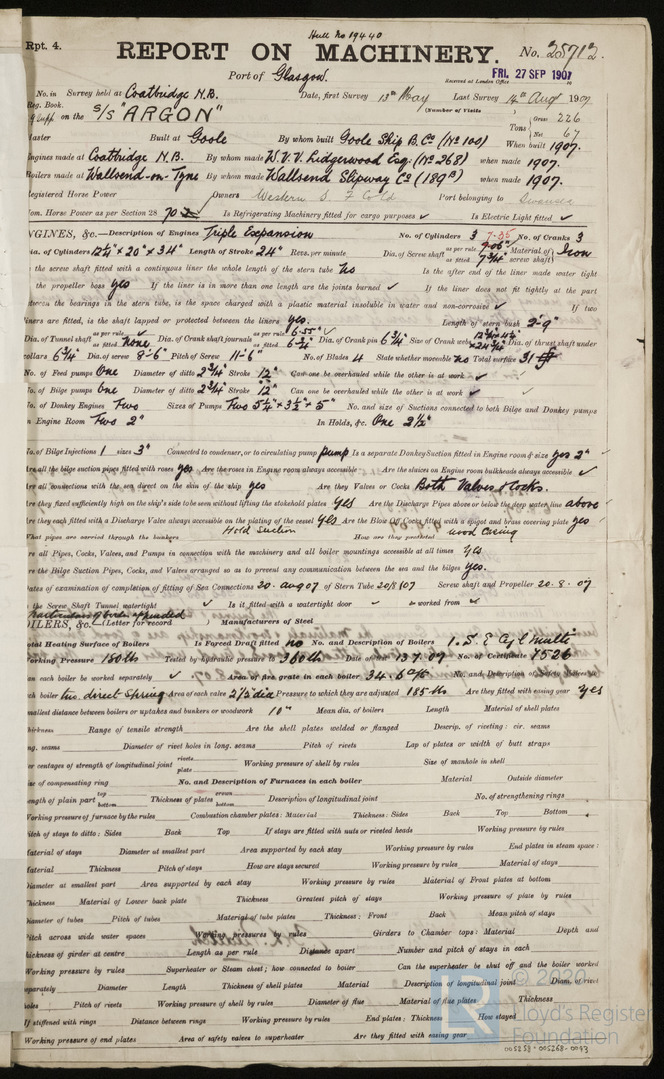 Hull No 19440
Rpt. 4.
REPORT ON MACHINERY. No. 25712.
Port of Glasgow.
Received at London Office FRI. 27 SEP 1907
No. in Survey held at Coatbridge N.B. Date, first Survey 13th May Last Survey 14th Aug 1907
Reg. Book. (Number of Visits
on the S/S "ARGON" Tons Gross 226 Net 67
Master Built at Goole By whom built Goole Ship B. Co (No 100) When built 1907.
Engines made at Coatbridge N.B. By whom made W.V.V. Lidgerwood Esq. (No 268) when made 1907.
Boilers made at Wallsend-on-Tyne By whom made Wallsend Slipway Co (189B) when made 1907.
Registered Horse Power Owners Western S. F Co Ld Port belonging to Swansea
Nom. Horse Power as per Section 28 70 Is Refrigerating Machinery fitted for cargo purposes ✓ Is Electric Light fitted ✓
ENGINES, &c.—Description of Engines Triple Expansion No. of Cylinders 3 No. of Cranks 3
Dia. of Cylinders 12¼" × 20" × 34" Length of Stroke 24" Revs. per minute Dia. of Screw shaft as per rule 7.05" as fitted 7¾" Material of screw shaft Iron
the screw shaft fitted with a continuous liner the whole length of the stern tube No Is the after end of the liner made water tight
the propeller boss yes If the liner is in more than one length are the joints burned ✓ If the liner does not fit tightly at the part
between the bearings in the stern tube, is the space charged with a plastic material insoluble in water and non-corrosive ✓ If two
liners are fitted, is the shaft lapped or protected between the liners yes. Length of stern bush 2'-9"
Dia. of Tunnel shaft as per rule as fitted None Dia. of Crank shaft journals as per rule 6.55" as fitted 6¾" Dia. of Crank pin 6¾" Size of Crank webs Dia. of thrust shaft under
collars 6¾" Dia. of screw 8'-6" Pitch of Screw 11'-6" No. of Blades 4 State whether moveable No Total surface 31
No. of Feed pumps One Diameter of ditto 2¾" Stroke 12" Can one be overhauled while the other is at work ✓
No. of Bilge pumps One Diameter of ditto 2¾" Stroke 12" Can one be overhauled while the other is at work ✓
No. of Donkey Engines Two Sizes of Pumps Two 5¼" × 3½" × 5" No. and size of Suctions connected to both Bilge and Donkey pumps
in Engine Room Two 2" In Holds, &c. One 2½"
No. of Bilge Injections 1 sizes 3" Connected to condenser, or to circulating pump pump Is a separate Donkey Suction fitted in Engine room & size yes 2" ✓
Are all the bilge suction pipes fitted with roses yes Are the roses in Engine room always accessible Are the sluices on Engine room bulkheads always accessible ✓
Are all connections with the sea direct on the skin of the ship yes Are they Valves or Cocks Both Valves & Cocks.
Are they fixed sufficiently high on the ship's side to be seen without lifting the stokehold plates yes Are the Discharge Pipes above or below the deep water line above ✓
Are they each fitted with a Discharge Valve always accessible on the plating of the vessel yes Are the Blow Off Cocks fitted with a spigot and brass covering plate yes
What pipes are carried through the bunkers Hold Suction How are they protected wood Casing
Are all Pipes, Cocks, Valves, and Pumps in connection with the machinery and all boiler mountings accessible at all times yes
Are the Bilge Suction Pipes, Cocks, and Valves arranged so as to prevent any communication between the sea and the bilges yes.
Dates of examination of completion of fitting of Sea Connections 20. aug 07 of Stern Tube 20/8/07 Screw shaft and Propeller 20. 8. 07
the Screw Shaft Tunnel watertight ✓ Is it fitted with a watertight door ✓ worked from ✓
BOILERS, &c.—(Letter for record ) Manufacturers of Steel
Total Heating Surface of Boilers Is Forced Draft fitted no No. and Description of Boilers 1. S.E. Cyl Multi
Working Pressure 180 lb Tested by hydraulic pressure to 360 lb Date of test 13.7.07 No. of Certificate 7526
Can each boiler be worked separately ✓ Area of fire grate in each boiler 34. 6 No. and Description of Safety Valves to
each boiler two direct Spring Area of each valve 2½ dia Pressure to which they are adjusted 185 lb Are they fitted with easing gear yes
Smallest distance between boilers or uptakes and bunkers or woodwork 10" Mean dia. of boilers Length Material of shell plates
Thickness Range of tensile strength Are the shell plates welded or flanged Descrip. of riveting : cir. seams
long. seams Diameter of rivet holes in long. seams Pitch of rivets Lap of plates or width of butt straps
Per centages of strength of longitudinal joint rivets plate Working pressure of shell by rules Size of manhole in shell
Size of compensating ring No. and Description of Furnaces in each boiler Material Outside diameter
Length of plain part top bottom Thickness of plates crown bottom Description of longitudinal joint No. of strengthening rings
Working pressure of furnace by the rules Combustion chamber plates : Material Thickness : Sides Back Top Bottom
Pitch of stays to ditto : Sides Back Top If stays are fitted with nuts or riveted heads Working pressure by rules
Material of stays Diameter at smallest part Area supported by each stay Working pressure by rules End plates in steam space :
Material Thickness Pitch of stays How are stays secured Working pressure by rules Material of stays
Diameter at smallest part Area supported by each stay Working pressure by rules Material of Front plates at bottom
Thickness Material of Lower back plate Thickness Greatest pitch of stays Working pressure of plate by rules
Diameter of tubes Pitch of tubes Material of tube plates Thickness : Front Back Mean pitch of stays
Pitch across wide water spaces Working pressures by rules Girders to Chamber tops : Material Depth and
thickness of girder at centre Length as per rule Distance apart Number and pitch of stays in each
Working pressure by rules Superheater or Steam chest ; how connected to boiler Can the superheater be shut off and the boiler worked
separately Diameter Length Thickness of shell plates Material Description of longitudinal joint Diam. of rivet
holes Pitch of rivets Working pressure of shell by rules Diameter of flue Material of flue plates Thickness
If stiffened with rings Distance between rings Working pressure by rules End plates : Thickness How stayed
Working pressure of end plates Area of safety valves to superheater Are they fitted with easing gear
© 2020
Lloyd's Register
Foundation
005259-005268-0093